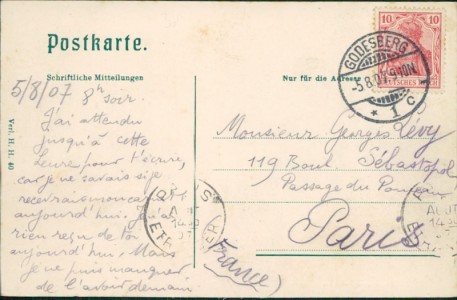 Postkarte.
Schriftliche Mitteilungen
Nur für die Adresse
10 10
DEUTSCHES REICH
GODESBERG
1 c
5/8/07 8h soir.
J'ai attendu
jusqu'à cette
heure pour t'écrire,
car je ne savais si je
recevrais mon
aujourd'hui. J'ai
rien reçu de toi
aujourd'hui, Mais
je ne puis manquer
de l'avoir demain
Monsieur Georges Lévy
119 Boul. Sébastopol
Passage du
Paris
(France)
PARIS
ETRANGER
AOUT
14
Verl. H. H. 40